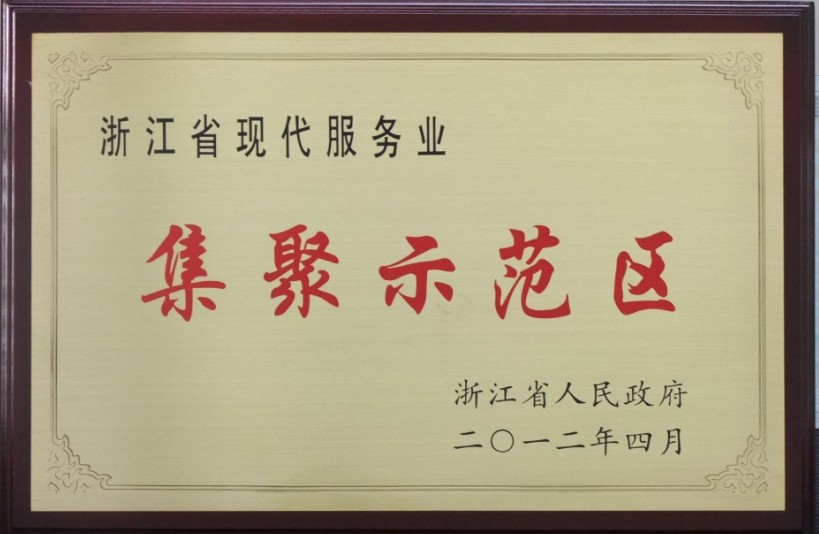 浙江省现代服务业
集聚示范区
浙江省人民政府
二〇一二年四月